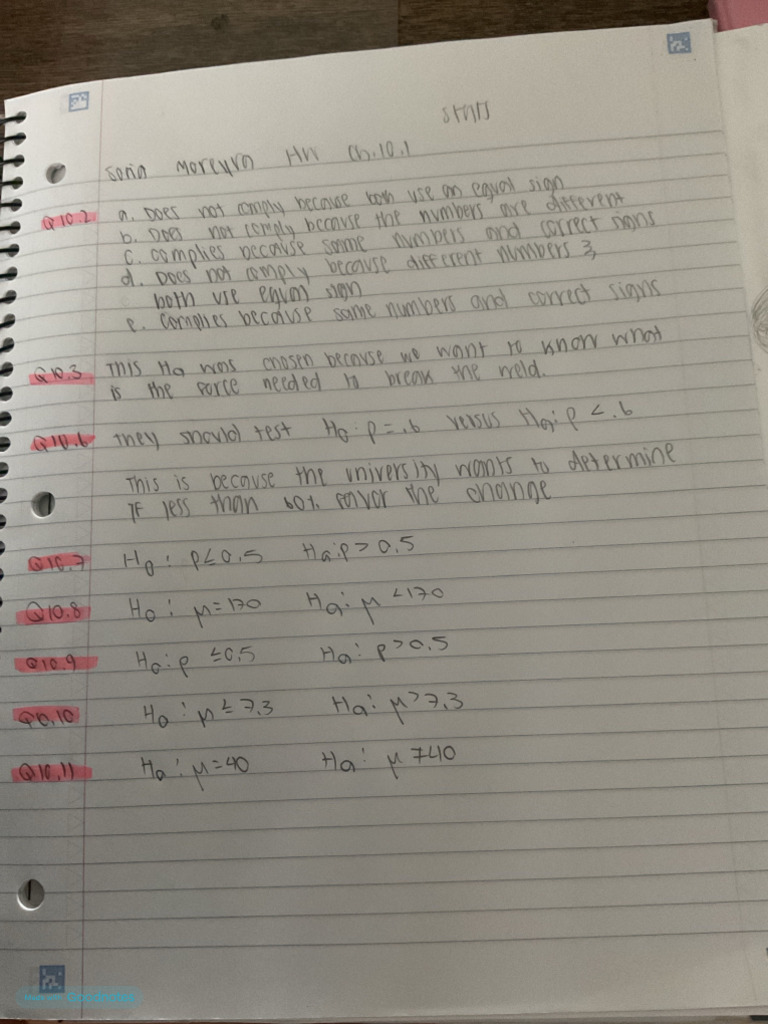 Stats
Sonia Moreyra HW Ch.10.1
Q10.2 a. Does not comply because both use an equal sign
b. Does not comply because the numbers are different
c. complies because same numbers and correct signs
d. Does not comply because different numbers &
both use equal sign
e. complies because same numbers and correct signs
Q10.3 This Ha was chosen because we want to know what
is the force needed to break the weld.
Q10.6 They should test H0: p=.6 versus Ha: p < .6
This is because the university wants to determine
if less than 60% favor the change
Q10.7 H0: p≤0.5 Ha: p > 0.5
Q10.8 H0: μ=170 Ha: μ <170
Q10.9 H0: p ≤0.5 Ha: p>0.5
Q10.10 H0: μ ≤ 7.3 Ha: μ>7.3
Q10.11 H0: μ=40 Ha: μ ≠40
Goodnotes